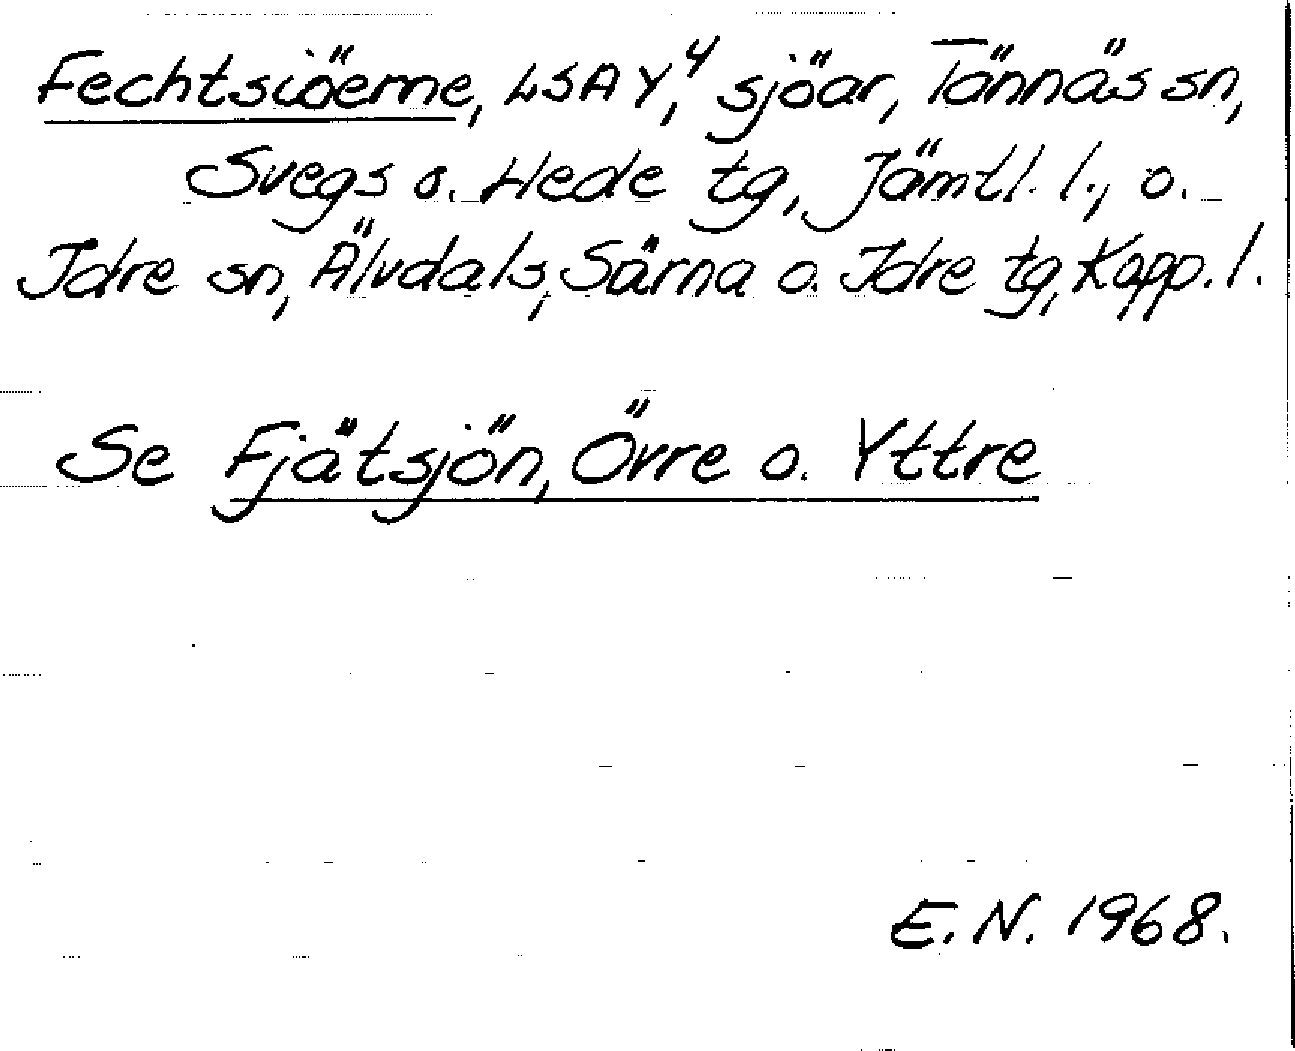 Fechtsiöerne, LSA Y,⁴ sjöar, Tännäs sn,
Svegs o. Hede tg, Jämtl. l., o.
Idre sn, Älvdals, Särna o. Idre tg, Kopp. l.
Se Fjätsjön, Övre o. Yttre
E.N. 1968.